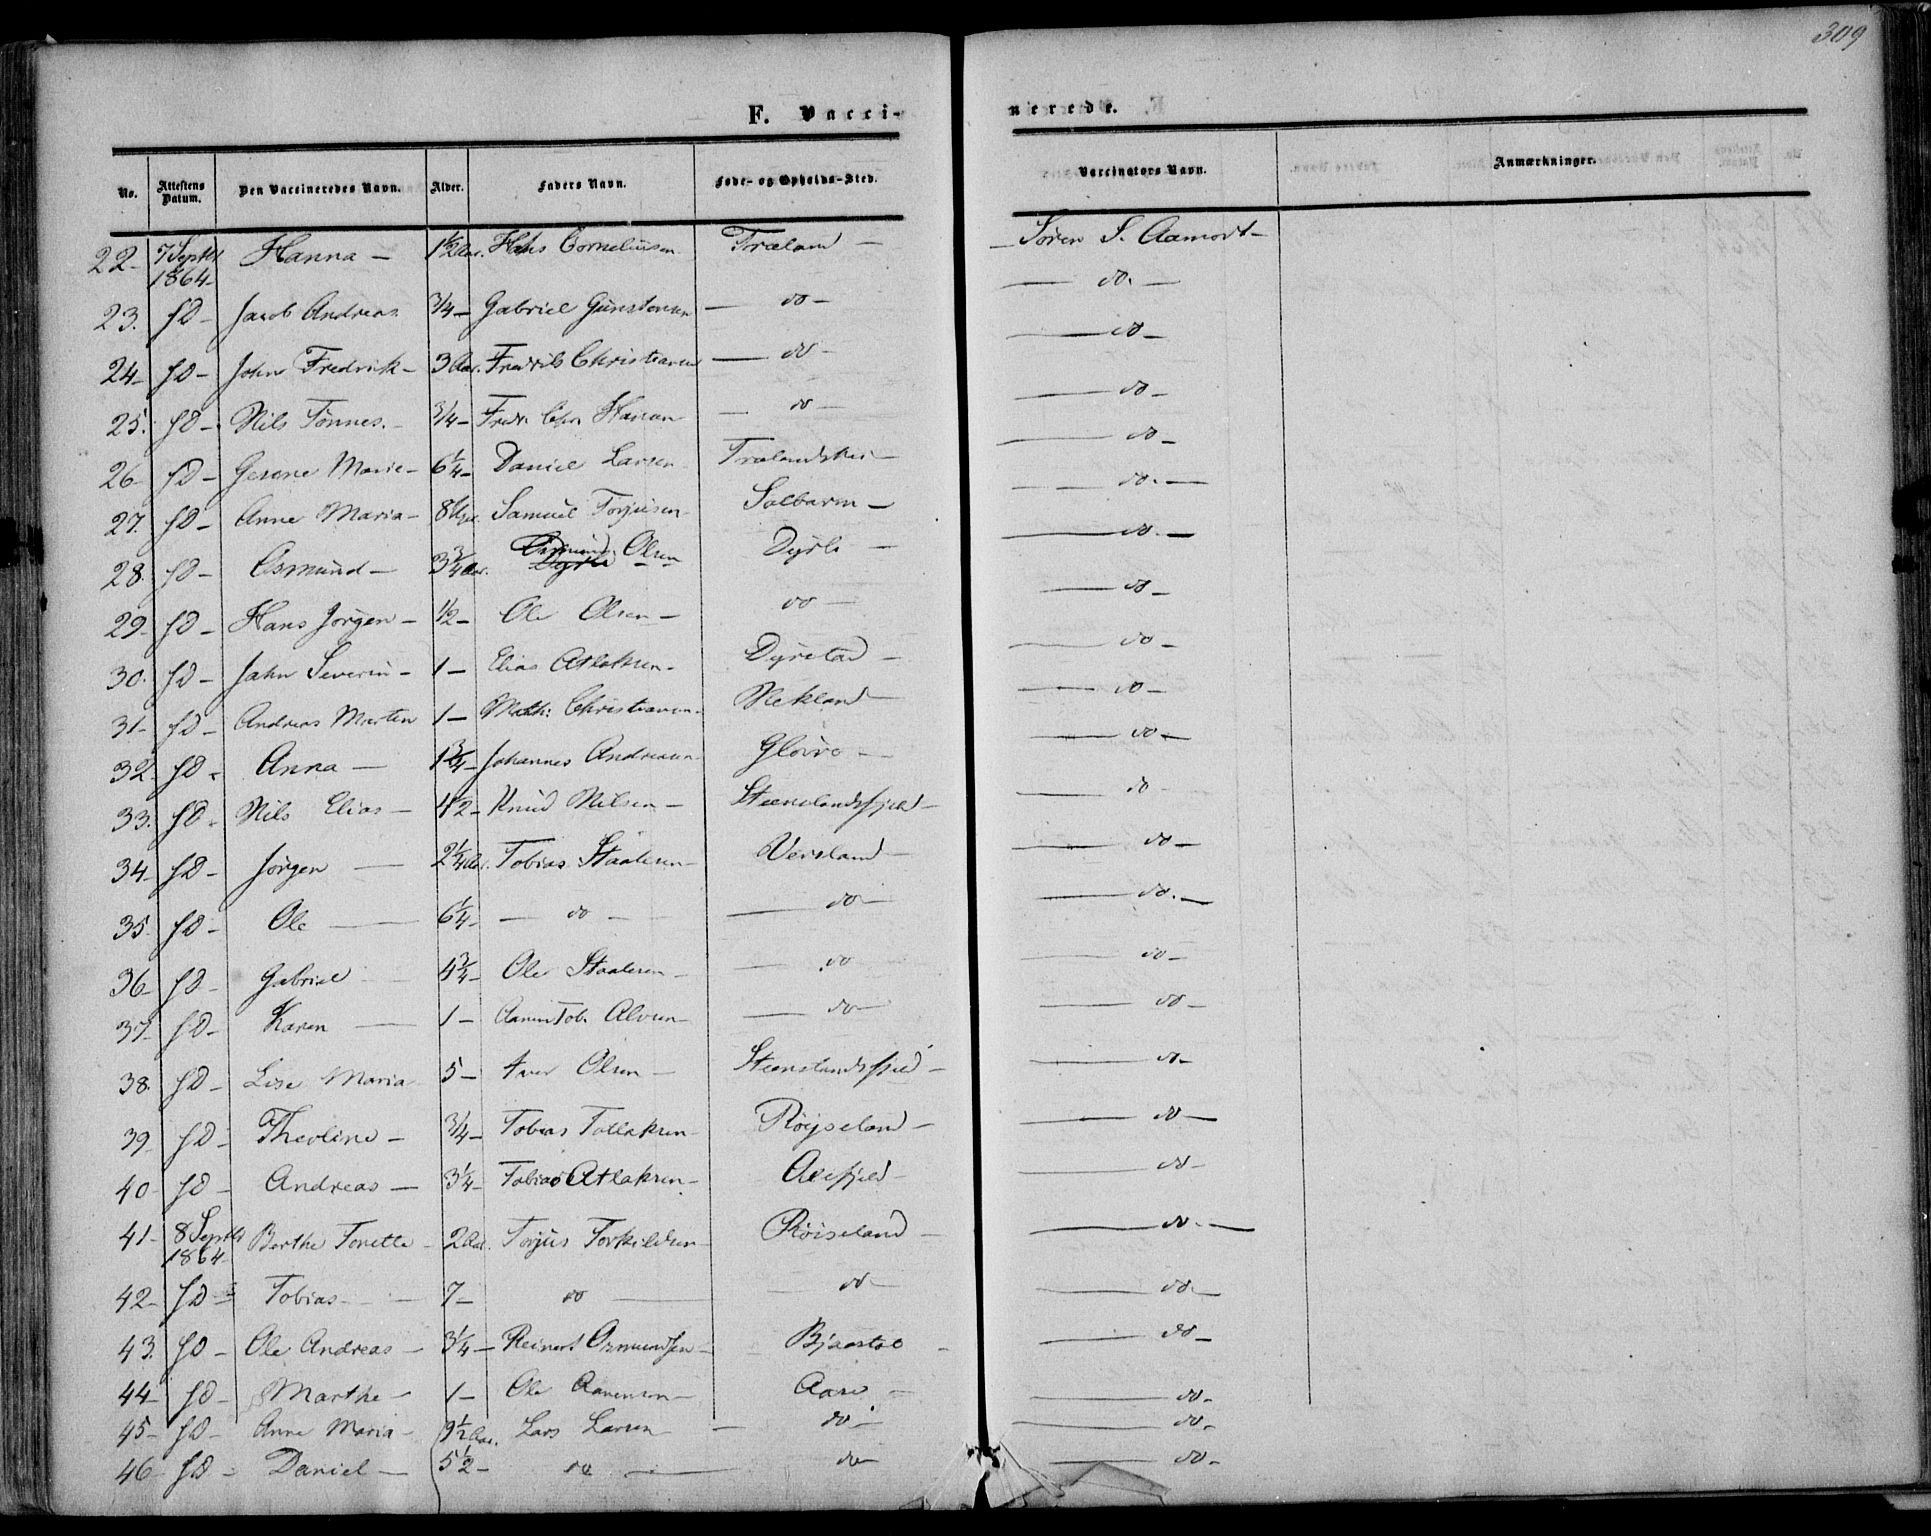 309
F. Vacci- nerede.
No. Attestens Datum. Den Vaccineredes Navn. Alder. Faders Navn. Føde- og Opholds-Sted. Vaccinators Navn. Anmærkninger.
22- 7 Septbr 1864- Hanna - 1½ Aar. Hans Corneliusen Træland - - Søren S. Aamodt -
23. sD - Jacob Andreas ¾ - Gabriel Gunstensen - do - - do. -
24- sD - John Fredrik - 3 Aar. Fredrik Christiansen - do - - do -
25. sD - Nils Tønnes. - ¾ - Fredr. Chr. Hansen - do - - do -
26- sD - Gesene Marie - 6¼ - Daniel Larsen - - do -
27. sD - Anne Maria - Samuel Torjusen - - do. -
28. sD - Osmund - 3¾ Aar. Osmund Olsen Dyrli - - do. -
29- sD - Hans Jørgen - ½ - Ole Olsen - do - - do -
30. sD - John Severin - 1 - Elias Atlaksen - Dyrstad - - do -
31- sD - Andreas Martin 1 - Math: Christiansen - Rekland - - do -
32- sD - Anna - 1¾ - Johannes Andreasen - - do -
33. sD - Nils Elias - Knud Nilsen - Steenslandsfjeld - - do -
34- sD - Jørgen - 2¼ Aar. Tobias Staalesen - Versland - - do -
35. sD - Ole - 6¼ - - do - - do - - do. -
36- sD - Gabriel 4¾ - Ole Staalesen - - do - - do -
37. sD - Karen - 1 - Aanen Tob. - - do - - do -
38. sD - Lise Maria 5 - Iver Olsen - Steenslandsfjeld - - do -
39. sD - Theoline - ¾ - Tobias Tollaksen - Röyseland - - do -
40- sD - Andreas - 3¼ - Tobias Atlaksen - - do -
41- 8 Septbr 1864- Berthe Tonette - 2 Aar. Torjus Torkildsen - Röiseland - - do. -
42- sD - Tobias - 7 - do - - do - - do. -
43. sD - Ole Andreas - 3¼ - Reinert Osmundsen - - do -
44- sD - Marthe - 1 - Ole Aanensen - Aase - - do -
45- sD - Anne Maria - 9½ Aar. Lars Larsen - - do - - do -
46- sD - Daniel - 5½ - do - do - - do -